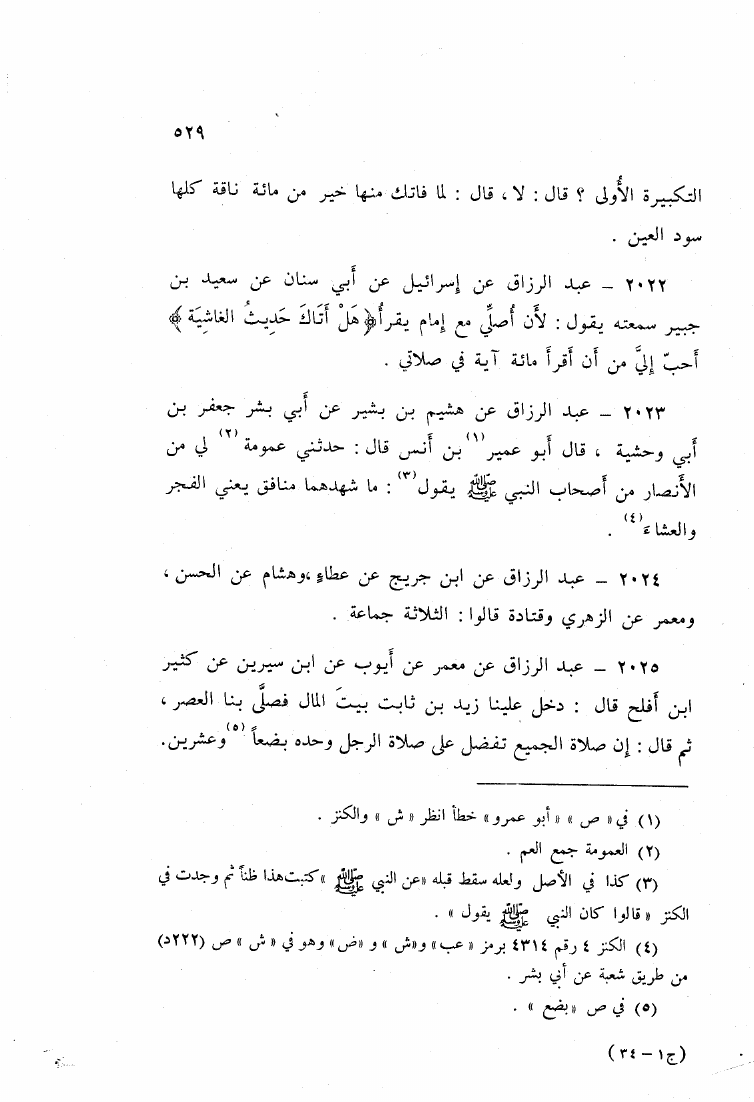 ٥٢٩
التكبيرة الأُولى ؟ قال : لا ، قال : لما فاتك منها خير من مائة ناقة كلها
سود العين .
٢٠٢٢ – عبد الرزاق عن إسرائيل عن أَبي سنان عن سعيد بن
جبير سمعته يقول : لأَن أُصلِّي مع إمام يقرأ ﴿هَلْ أَتَاكَ حَدِيثُ الغاشيَة﴾
أَحبّ إليَّ من أَن أَقرأَ مائة آية في صلاتي .
٢٠٢٣ – عبد الرزاق عن هشيم بن بشير عن أَبي بشر جعفر بن
أَبي وحشية ، قال أَبو عمير(١) بن أَنس قال : حدثني عمومة (٢) لي من
الأَنصار من أَصحاب النبي ﷺ يقول(٣) : ما شهدهما منافق يعني الفجر
والعشاءَ(٤) .
٢٠٢٤ – عبد الرزاق عن ابن جريج عن عطاءٍ ،وهشام عن الحسن ،
ومعمر عن الزهري وقتادة قالوا : الثلاثة جماعة .
٢٠٢٥ – عبد الرزاق عن معمر عن أَيوب عن ابن سيرين عن كثير
ابن أَفلح قال : دخل علينا زيد بن ثابت بيتَ المال فصلَّى بنا العصر ،
ثم قال : إن صلاة الجميع تفضل على صلاة الرجل وحده بضعاً(٥) وعشرين.
(١) في « ص » « أبو عمرو » خطأ انظر « ش » والكنز .
(٢) العمومة جمع العم .
(٣) كذا في الأصل ولعله سقط قبله «عن النبي ﷺ » كتبت هذا ظناً ثم وجدت في
الكنز « قالوا كان النبي ﷺ يقول » .
(٤) الكنز ٤ رقم ٤٣١٤ برمز « عب » و«ش » و «ض» وهو في « ش » ص (٢٢٢د)
من طريق شعبة عن أبي بشر .
(٥) في ص «بضع » .
(ج١ – ٣٤)